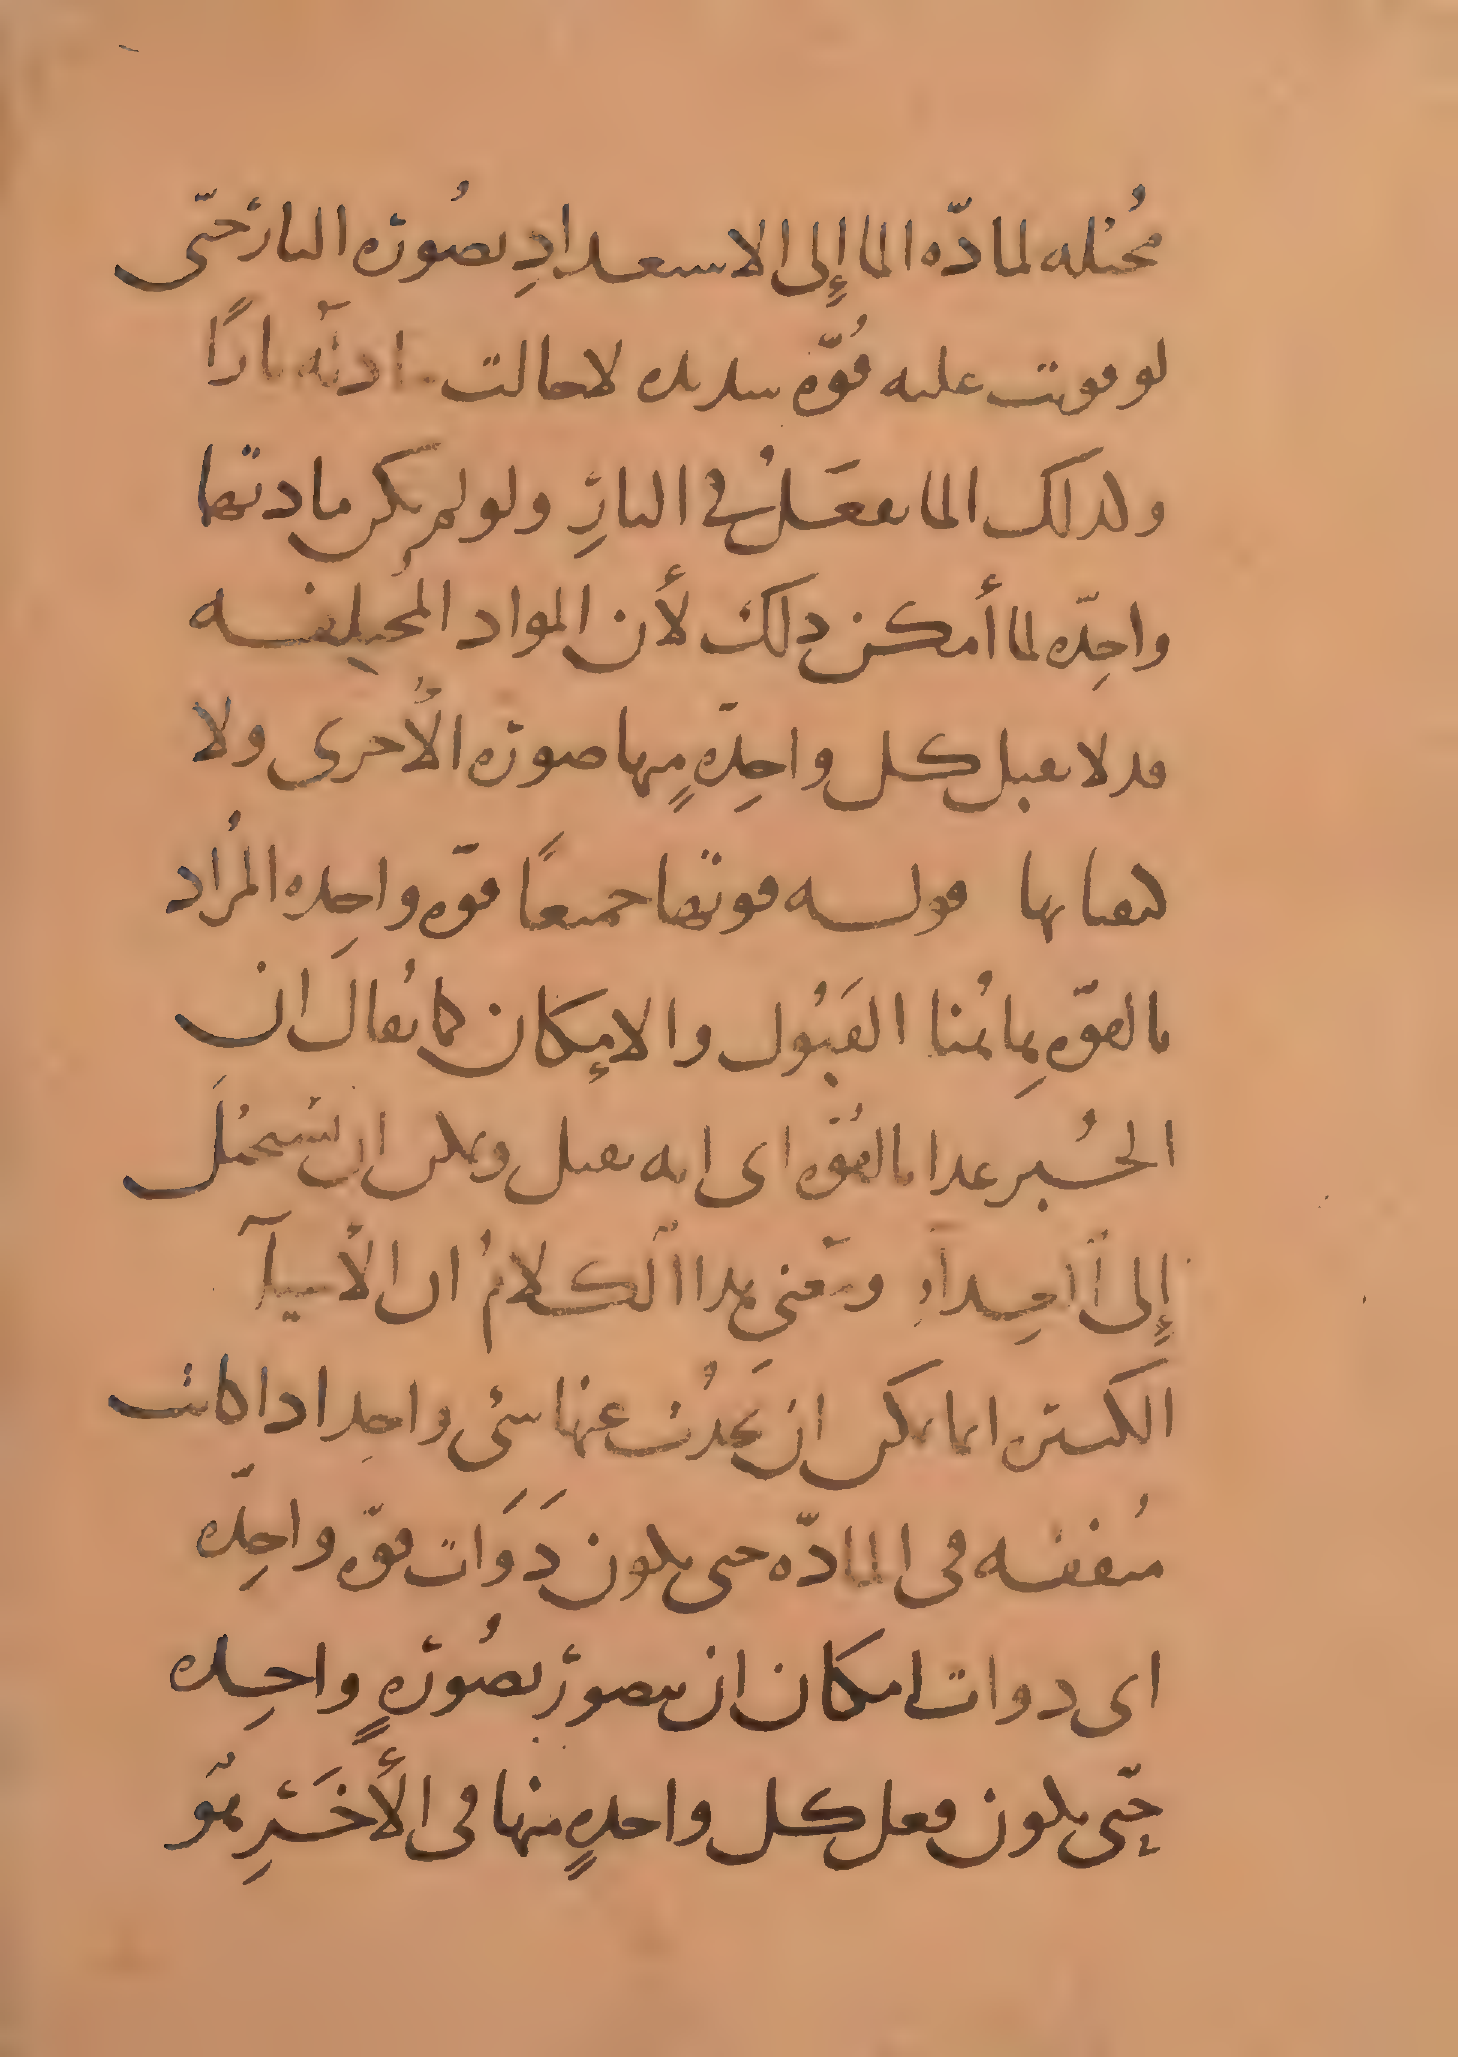 محيله لمادّه الما إِلى الاستعدادِ بصُورة النار حتّى
لو قويت عليه قُوّه شديده لاحالت مادته نارًا
ولذلك الما يفعَلُ في النارِ ولو لم يكن مادتها
واحِدّه لما أمكن ذلك لأن المواد المُختلِفه
قد لا يقبل كل واحِدّهٍ مِنها صورة الأُخرى ولا
قوله قوتها جميعًا قوّه واحِده المُراد
بالقوّه هاهُنا القَبُول والإمكان كما يُقالَ ان
الخُبز غدا بالقُوّه اى انه يقبل ويمكن ان تستحيلَ
إِلى الغِذآءِ ومعنى هذا الكلامُ ان الأشيآ
الكثيره انما يمكن ان يَحدُث عنها شى واحِد اذا كانت
مُتفقه فى المادّه حتى يكون ذَوَات قوّه واحِدّه
اى ذوات امكان ان يتصور بصُورهٍ واحِده
حتّى يكون فعل كل واحدهٍ منها فى الأخَرِ